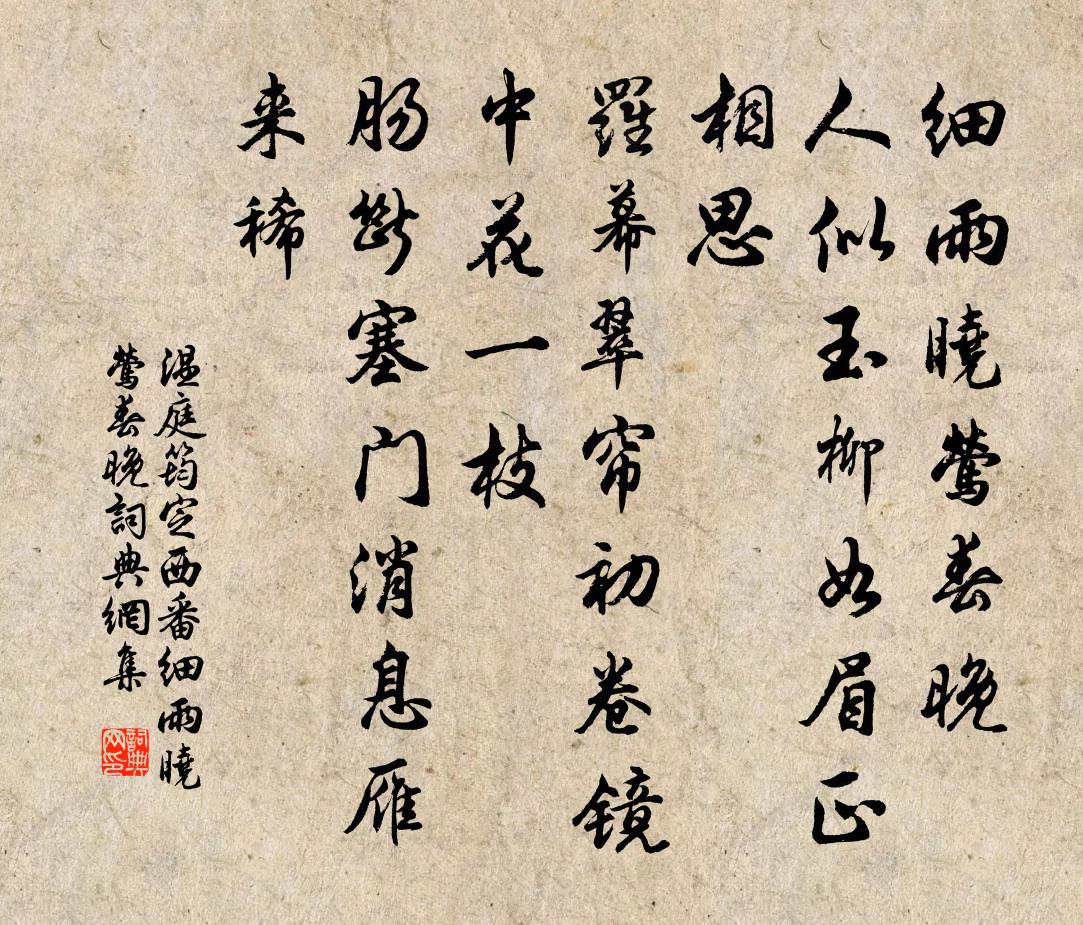 细雨曉莺春晚
人似玉柳如眉正
相思
羅幕翠帘初卷镜
中花一枝
肠断塞门消息雁
来稀
温庭筠定西番细雨曉
莺春晚詞典網集
詞典网印